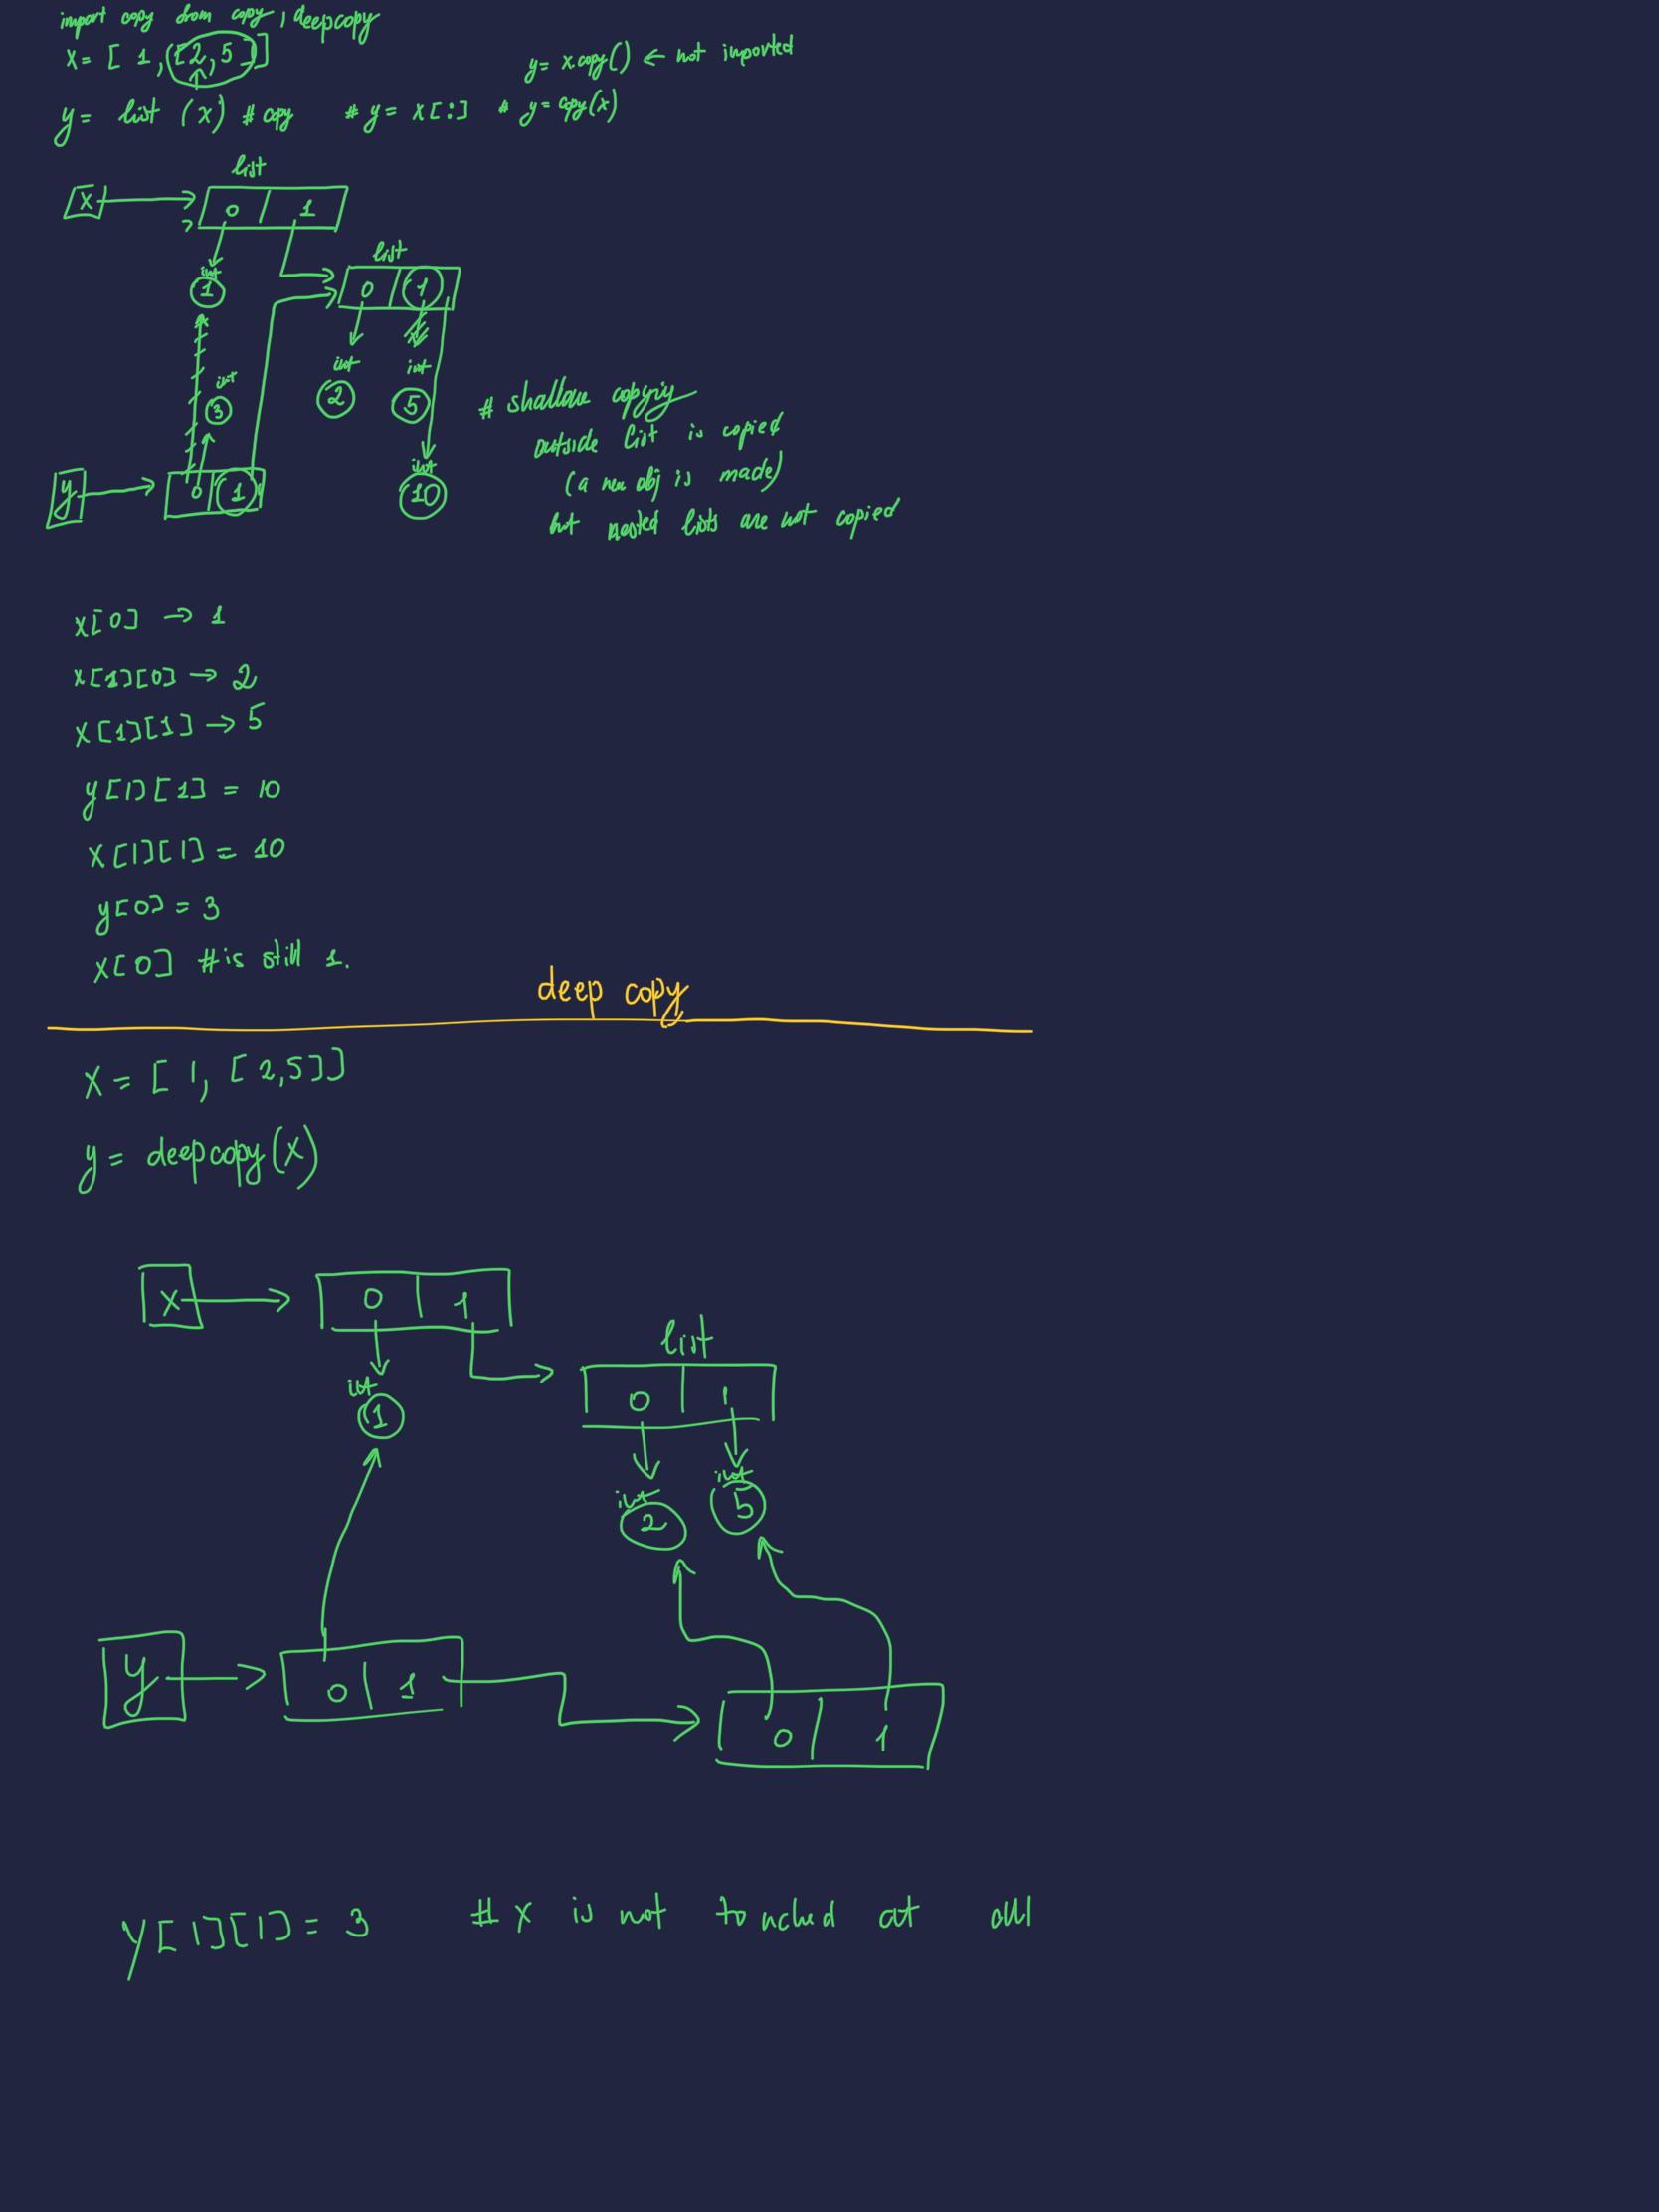 import copy from copy, deepcopy
x = [ 1, [2, 5 ]]
y = x.copy() ← not imported
y = list (x) # copy # y = x[:] # y = copy(x)
list
x 0 1
list
int
1 0 1
int int
int
3 2 5
# shallow copying
outside list is copied
int
y 0 1 10
(a new obj is made)
but nested lists are not copied
x[0] → 1
x[1][0] → 2
x[1][1] → 5
y[1][1] = 10
x[1][1] = 10
y[0] = 3
x[0] # is still 1.
deep copy
x = [ 1, [ 2,5]]
y = deepcopy(x)
x 0 1
list
int 0 1
1
int int
2 5
y 0 1
0 1
y[1][1] = 3 # x is not touched at all